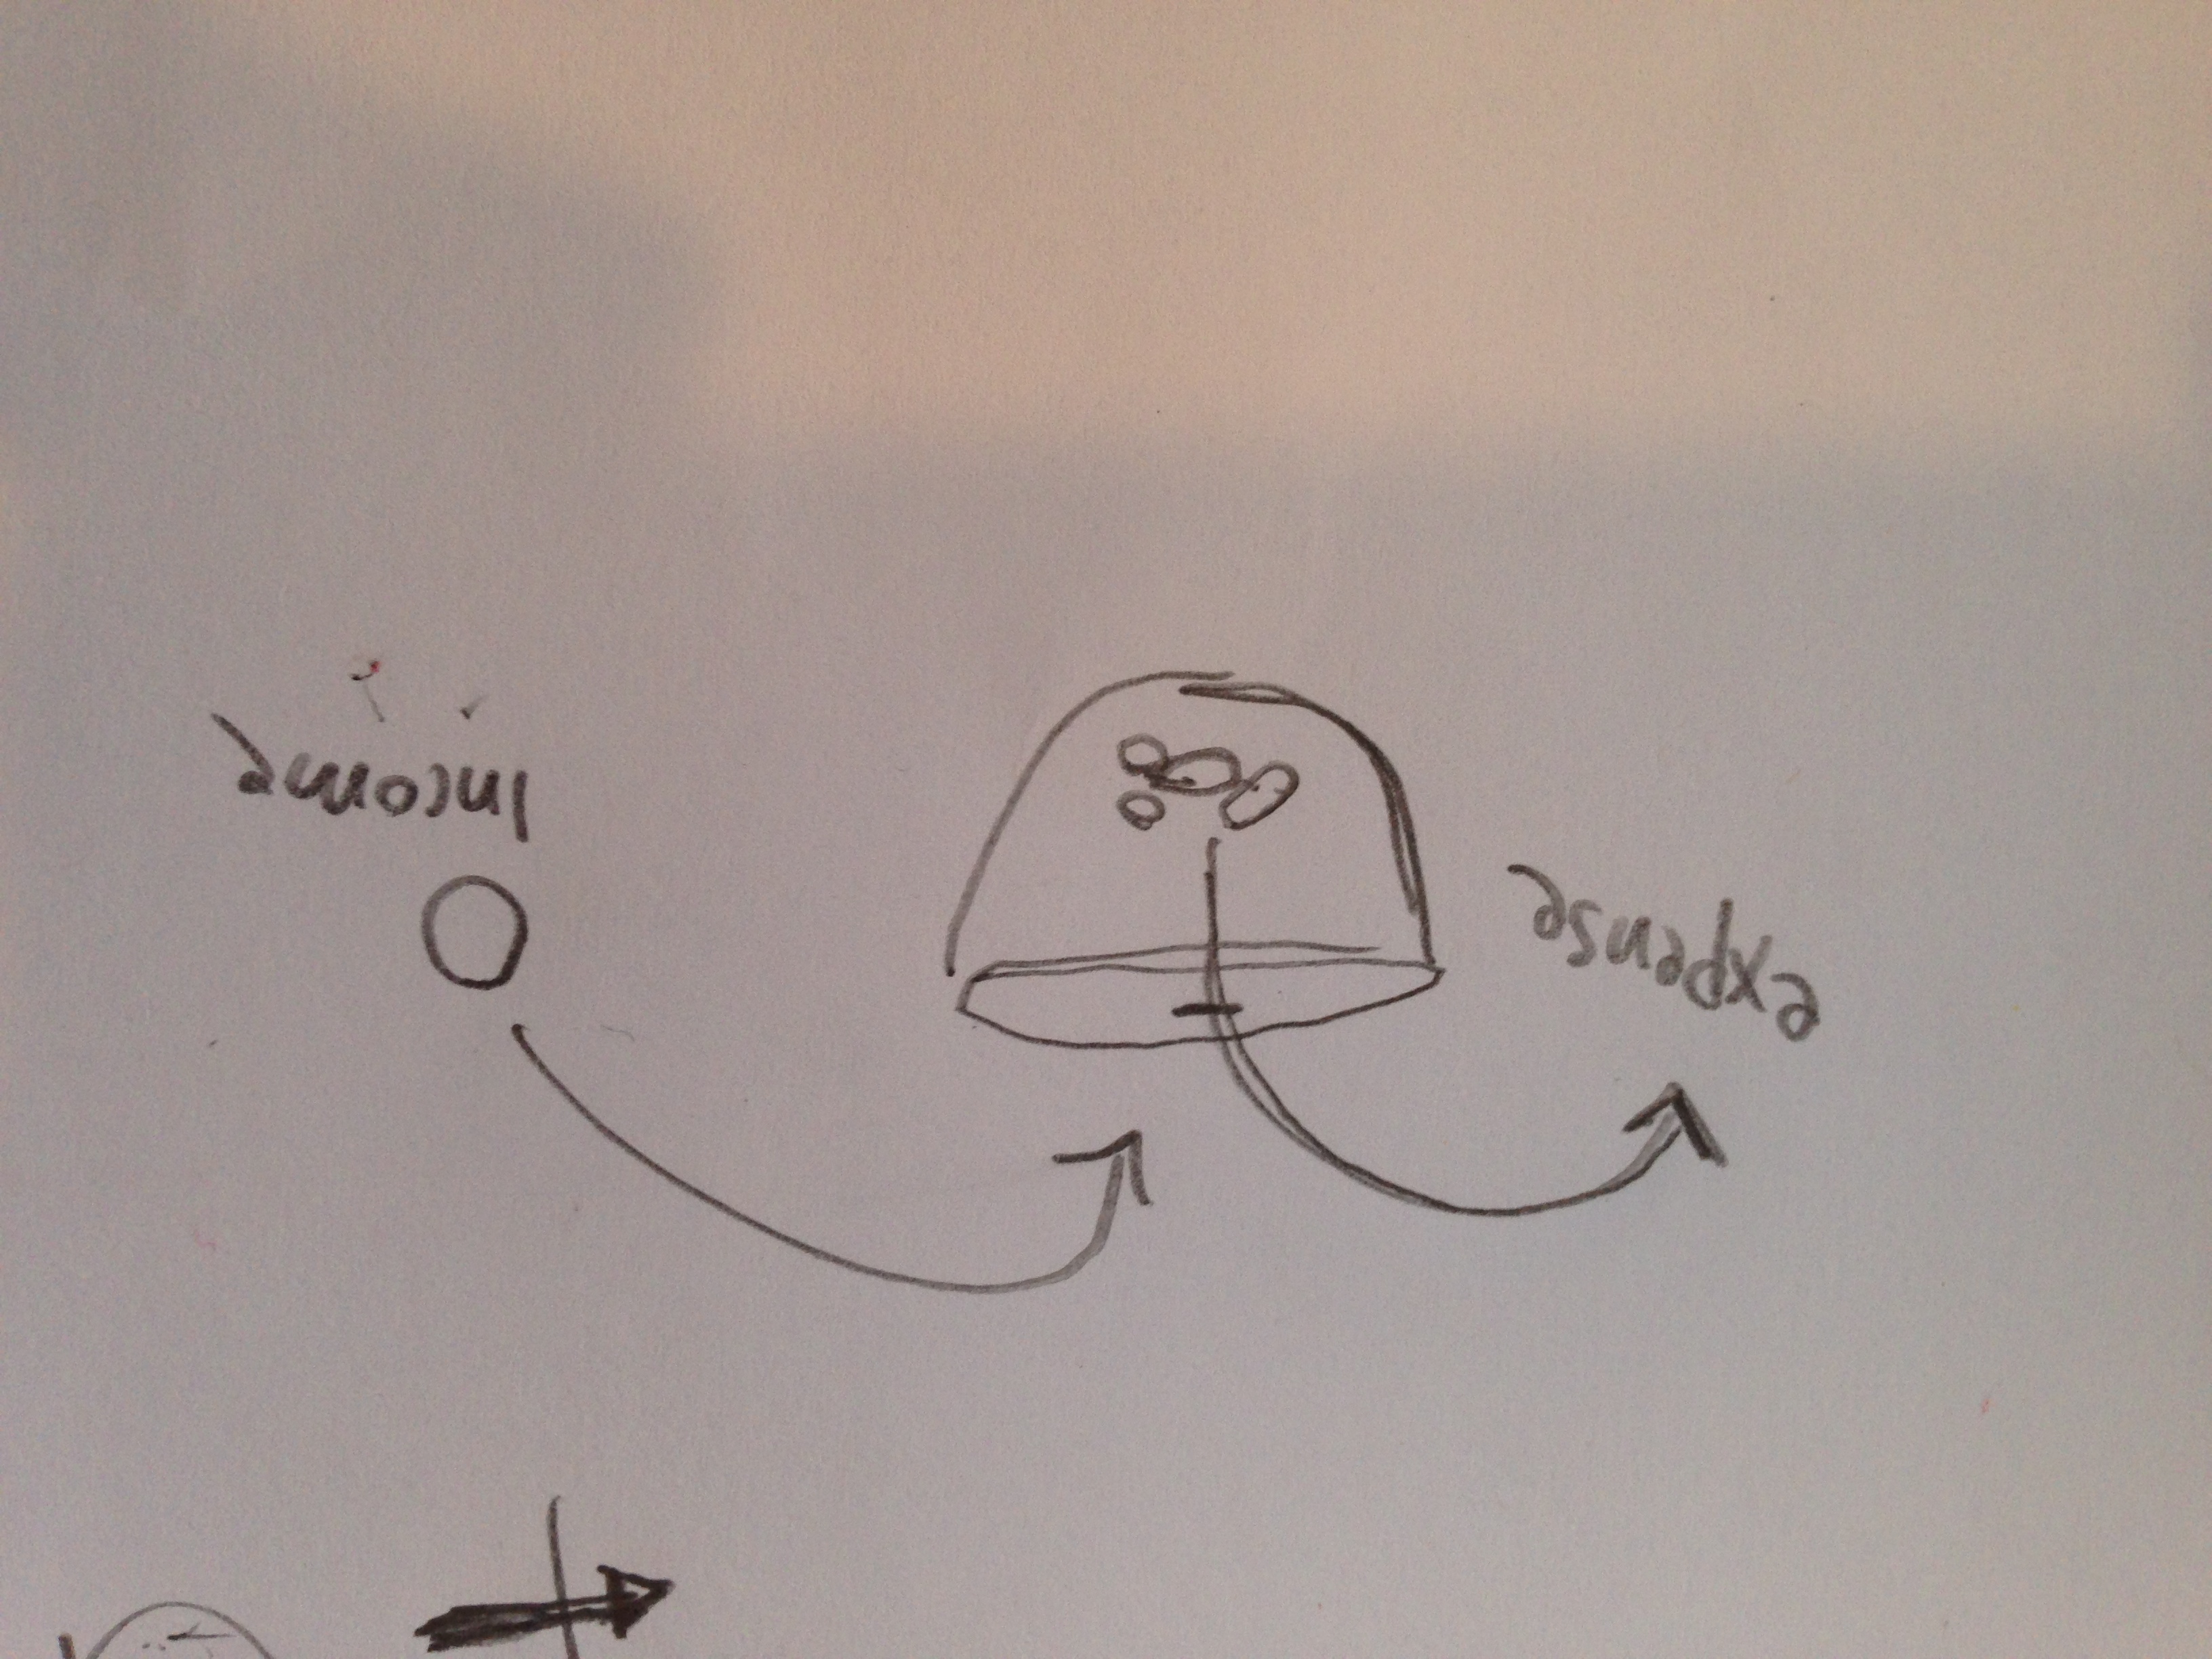 expense
Income